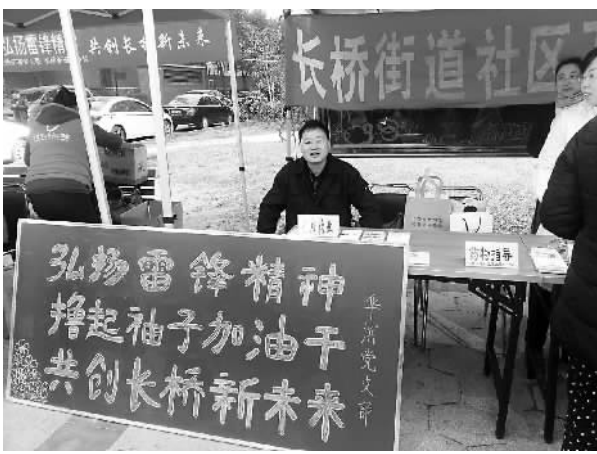 弘扬雷锋精
共创长桥新未来
长桥街道社区
药物指导
弘扬雷锋精神
撸起袖子加油干
共创长桥新未来